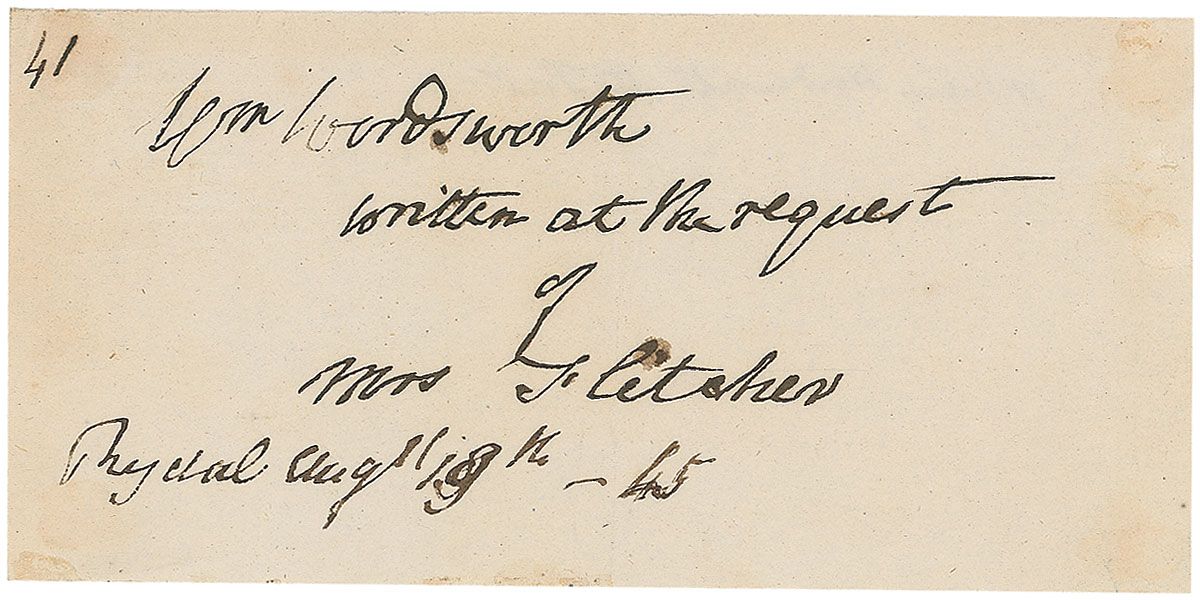 41
Wm Wordsworth
written at the request
of
Mrs Fletcher
Rydal Augst 19th - 45